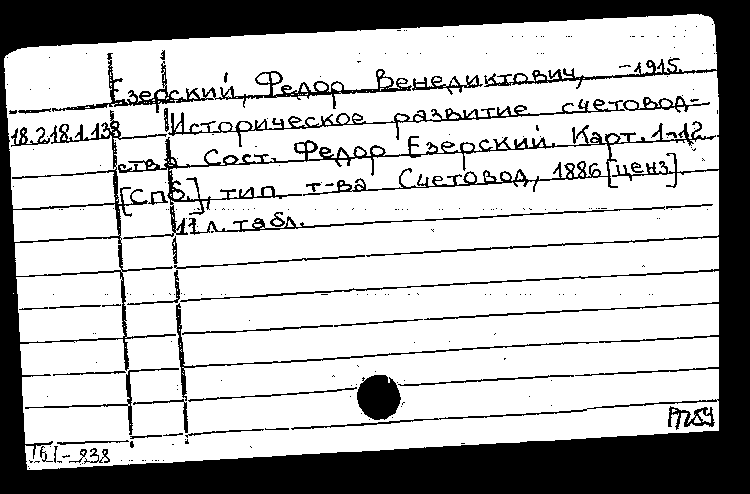 Езерский, Федор Венедиктович, -1915.
18.218.1.138 Историческое развитие счетовод=
ства. Сост. Федор Езерский. Карт. 1-12
[Спб.], тип. т-ва Счетовод, 1886 [ценз].
11 л. табл.
161-838